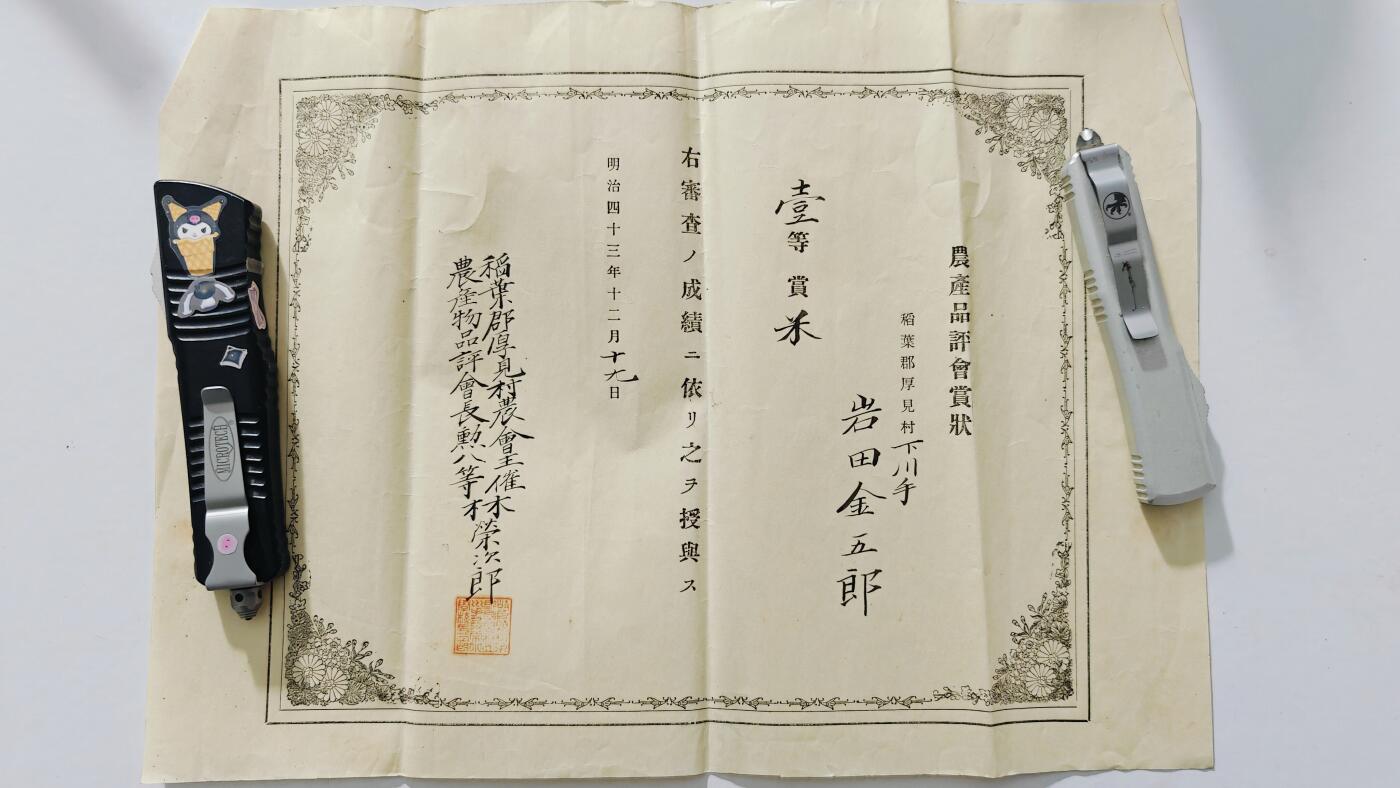 農產品評會賞狀
稻葉郡厚見村下川手
岩田金五郎
壹等賞米
右審査ノ成績ニ依リ之ヲ授與ス
明治四十三年十二月十九日
稻葉郡厚見村農會主催
農產物品評會長勲八等
林榮次郎
MICROTECH